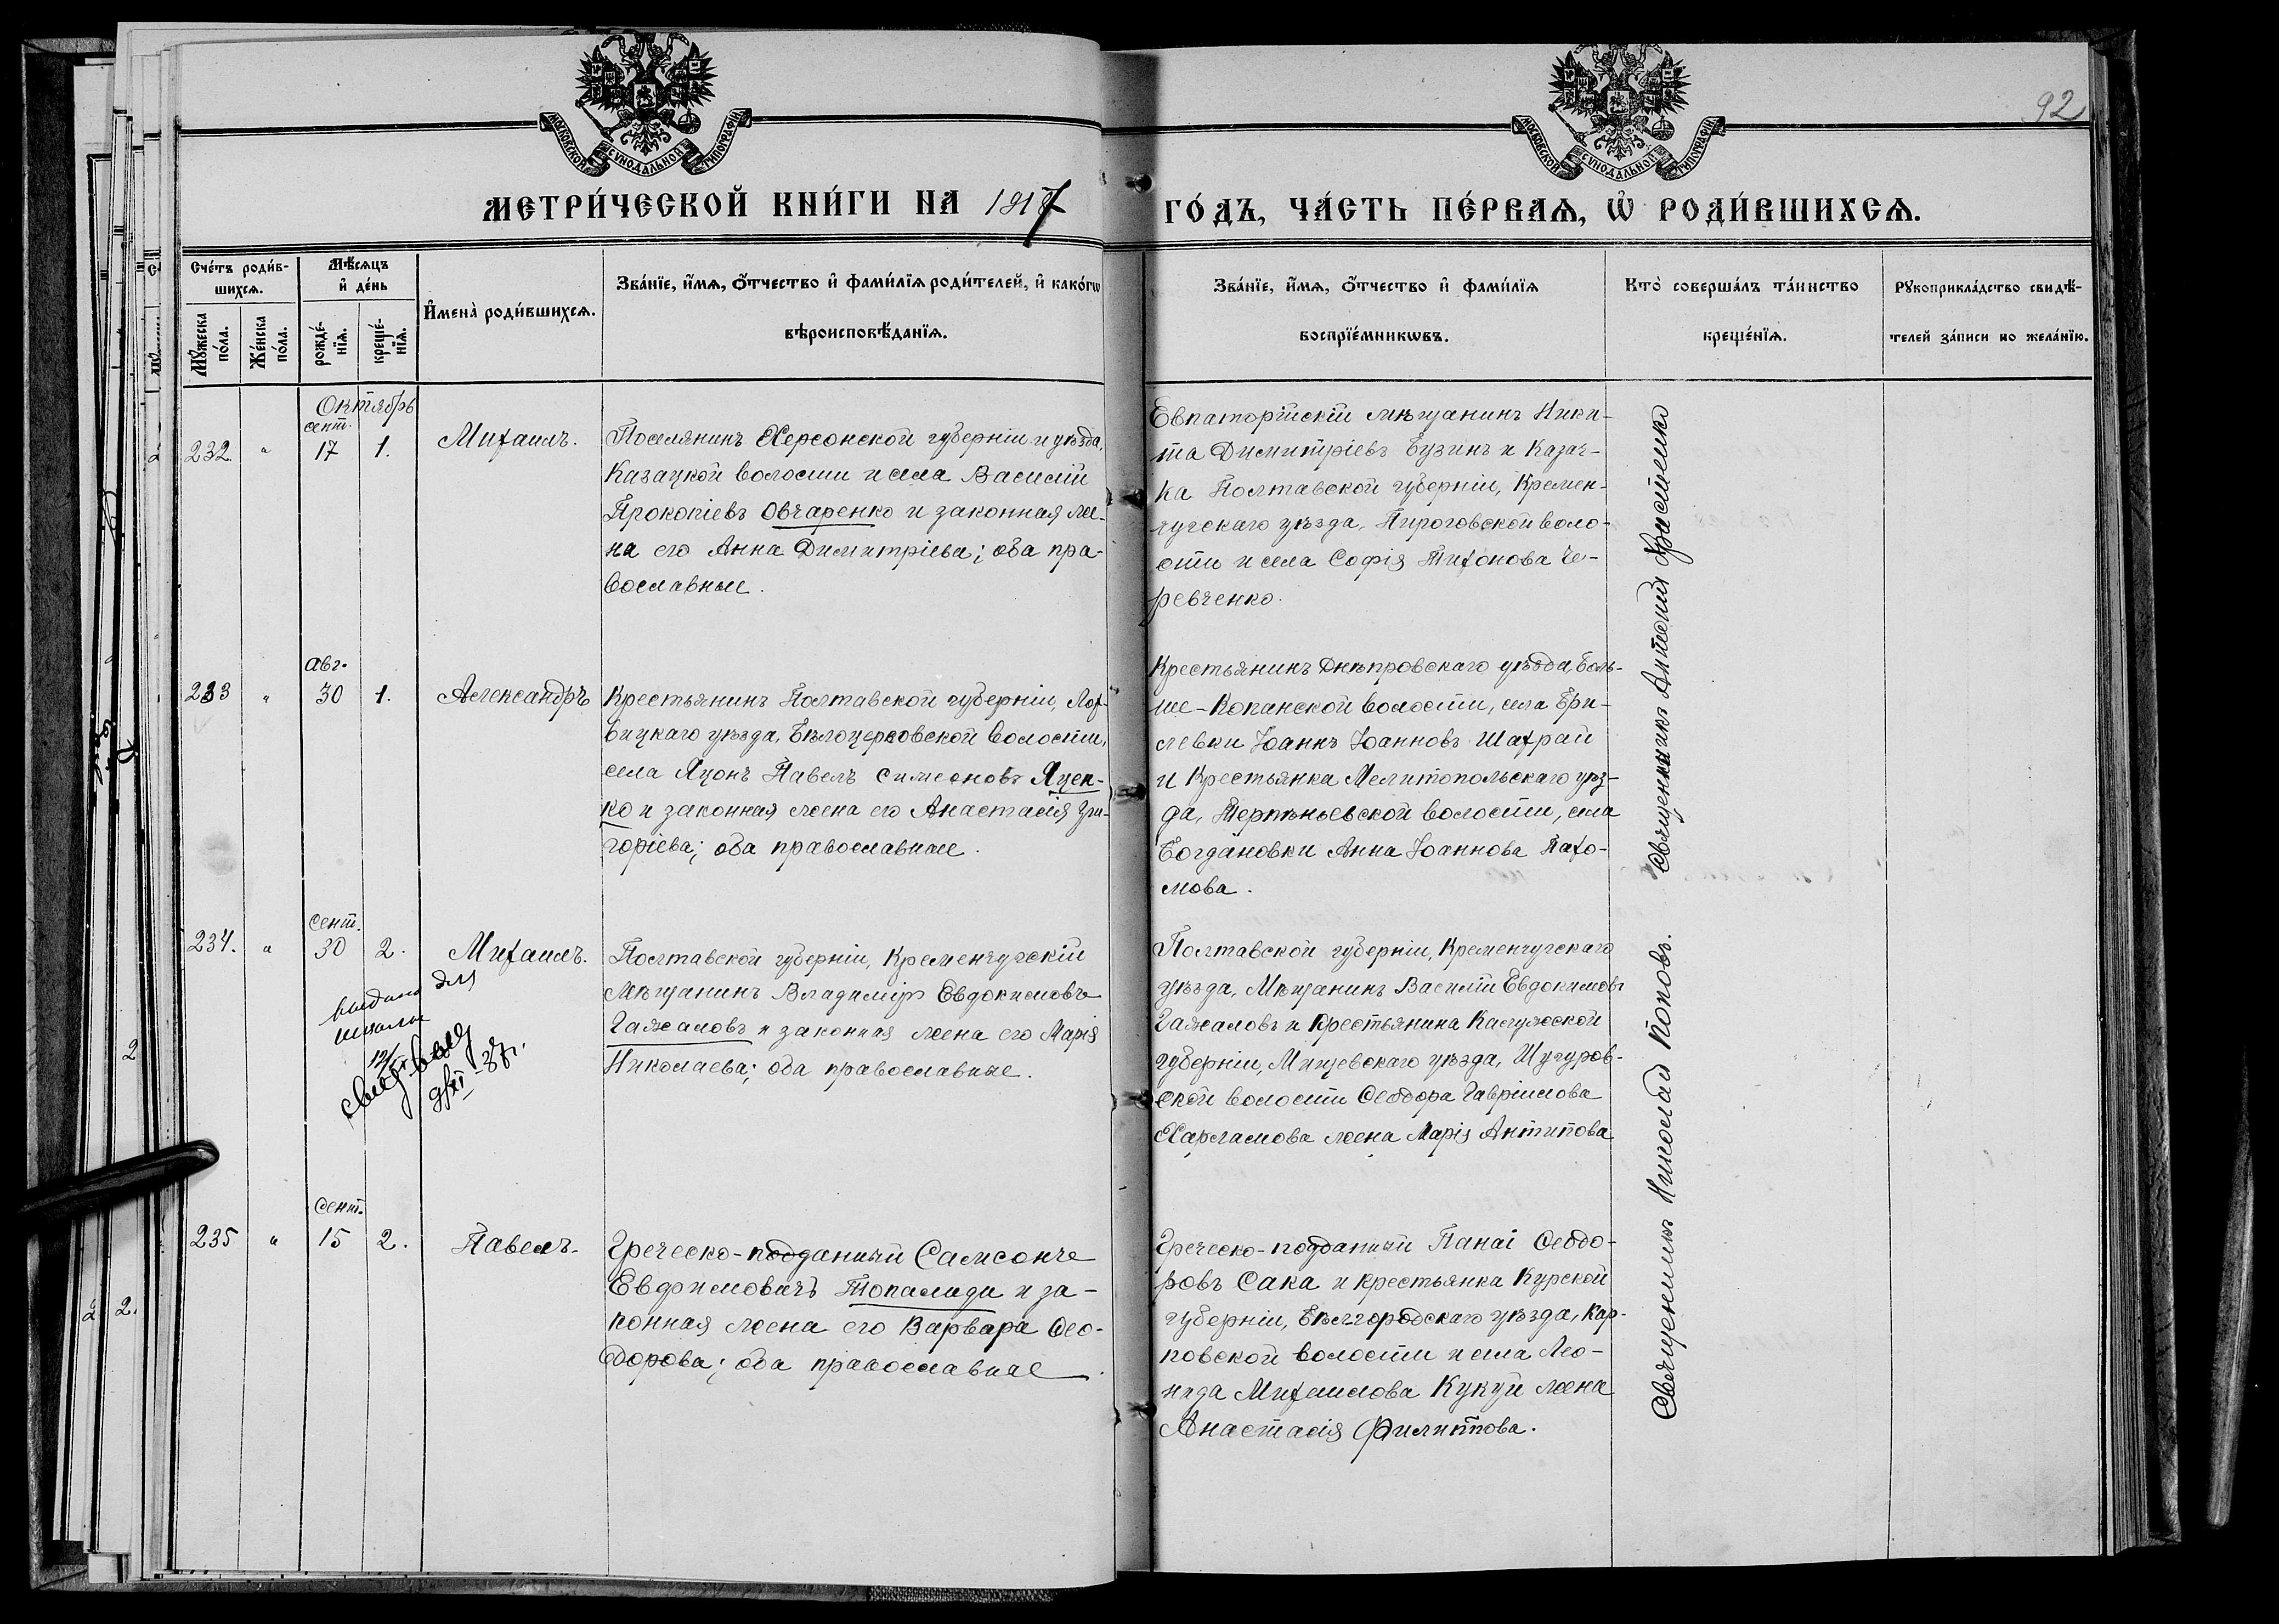 92
МОСКОВСКОЙ СѴНОДАЛЬНОЙ ТИПОГРАФІИ
МОСКОВСКОЙ СѴНОДАЛЬНОЙ ТИПОГРАФІИ
МЕТРИ́ЧЕСКОЙ КНИ́ГИ НА 1917 ГО́ДЪ, ЧА́СТЬ ПЕ́РВАЯ, Ѡ҆ РОДИ́ВШИХСѦ.
Сче́тъ роди́в-
шихсѧ.
Мꙋ́жеска
по́ла.
Же́нска
по́ла.
Мѣ́сѧцъ
и҆ де́нь
рожде́-
нїѧ.
креще́-
нїѧ.
И҆мена̀ роди́вшихсѧ.
Зва́нїе, и҆́мѧ, ѻ҆́тчество и҆ фами́лїѧ роди́телей, и҆ како́гѡ
вѣроисповѣ́данїѧ.
Зва́нїе, и҆́мѧ, ѻ҆́тчество и҆ фами́лїѧ
воспрїе́мникѡвъ.
Кто̀ соверша́лъ та́инство
креще́нїѧ.
Рꙋкоприкла́дство свидѣ́-
телей за́писи по жела́нїю.
Октябрь
232. " сент. 17 1. Михаилъ.
Поселянинъ Херсонской губерніи и уѣзда,
Казацкой волости и села Василій
Прокопіевъ Овчаренко и законная же-
на его Анна Димитріева; оба пра-
вославные.
Евпаторійскій мѣщанинъ Ники-
та Димитріевъ Бузинъ и Казач-
ка Полтавской губерніи, Кремен-
чугскаго уѣзда, Пироговской воло-
сти и села Софія Тихонова Че-
ревченко.
233 " авг. 30 1. Александръ
Крестьянинъ Полтавской губерніи, Лох-
вицкаго уѣзда, Бѣлоцерковской волости,
села Яцонъ Павелъ Симеоновъ Яцен-
ко и законная жена его Анастасія Гри-
горіева; оба православные.
Крестьянинъ Днѣпровскаго уѣзда, Боль-
ше-Копанской волости, села Бри-
левки Іоаннъ Іоанновъ Шахрай
и Крестьянка Мелитопольскаго уѣз-
да, Терпѣньевской волости, села
Богдановки Анна Іоаннова Пахо-
мова.
234. " сент. 30 2. Михаилъ.
Полтавской губерніи, Кременчугскій
Мѣщанинъ Владиміръ Евдокимовъ
Гажаловъ и законная жена его Марія
Николаева; оба православные.
выдана для
школы
Полтавской губерніи, Кременчугскаго
уѣзда, Мѣщанинъ Василій Евдокимовъ
Гажаловъ и Крестьянина Калужской
губерніи, Мищевскаго уѣзда, Шугуров-
ской волости Ѳеодора Гавріилова
Харламова жена Марія Антипова
235 " сент. 15 2. Павелъ.
Греческо-подданный Самсонче
Евфимовичъ Топалиди и за-
конная жена его Варвара Ѳео-
дорова; оба православные.
Греческо-подданный Панаі Ѳеодо-
ровъ Сака и крестьянка Курской
губерніи, Бѣлгородскаго уѣзда, Кар-
повской волости и села Лео-
нида Михаилова Кукуй жена
Анастасія Филиппова.
Священникъ Николай Поповъ. Священникъ Антоній